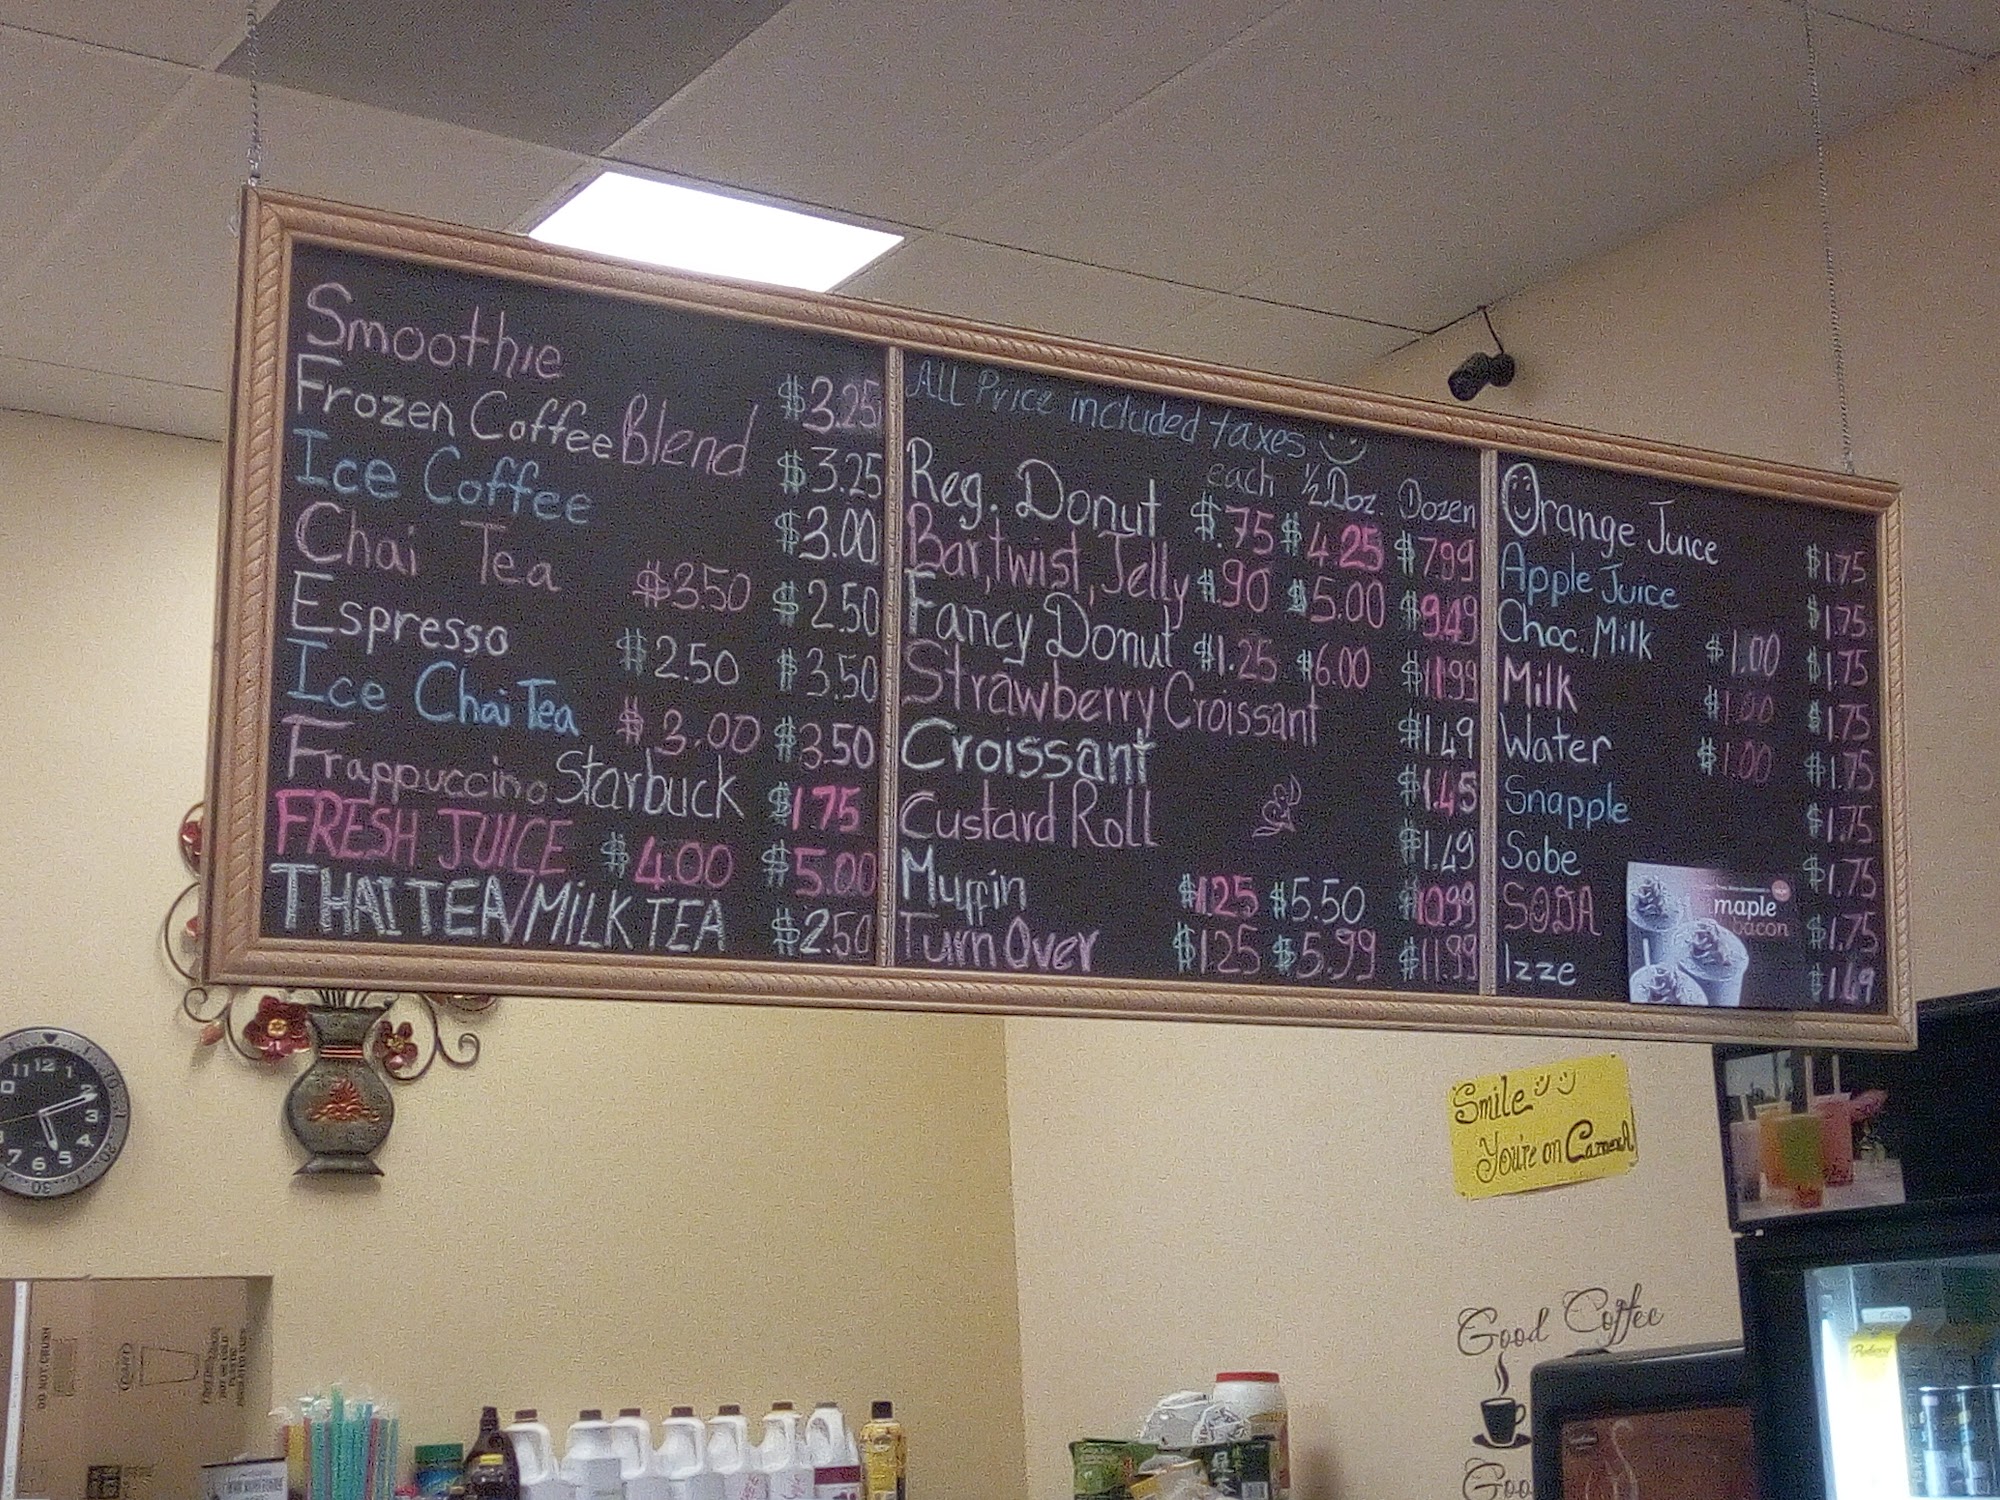 Smoothie $3.25
Frozen Coffee Blend $3.25
Ice Coffee $3.00
Chai Tea $3.50 $2.50
Espresso $2.50 $3.50
Ice Chai Tea $3.00 $3.50
Frappuccino Starbuck $1.75
FRESH JUICE $4.00 $5.00
THAI TEA/MILK TEA $2.50
ALL Price included taxes
each 1/2 Doz. Dozen
Reg. Donut $.75 $4.25 $7.99
Bar, twist, Jelly $.90 $5.00 $9.49
Fancy Donut $1.25 $6.00 $11.99
Strawberry Croissant $1.49
Croissant $1.45
Custard Roll $1.49
Muffin $1.25 $5.50 $10.99
Turn Over $1.25 $5.99 $11.99
Orange Juice $1.75
Apple Juice $1.75
Choc. Milk $1.00 $1.75
Milk $1.00 $1.75
Water $1.00 $1.75
Snapple $1.75
Sobe $1.75
SODA $1.75
Izze $1.69
maple
bacon
11 12 1 2 3 4 5 6 7
30
Smile
You're on Camera!
Good Coffee
Goo
DO NOT CRUSH